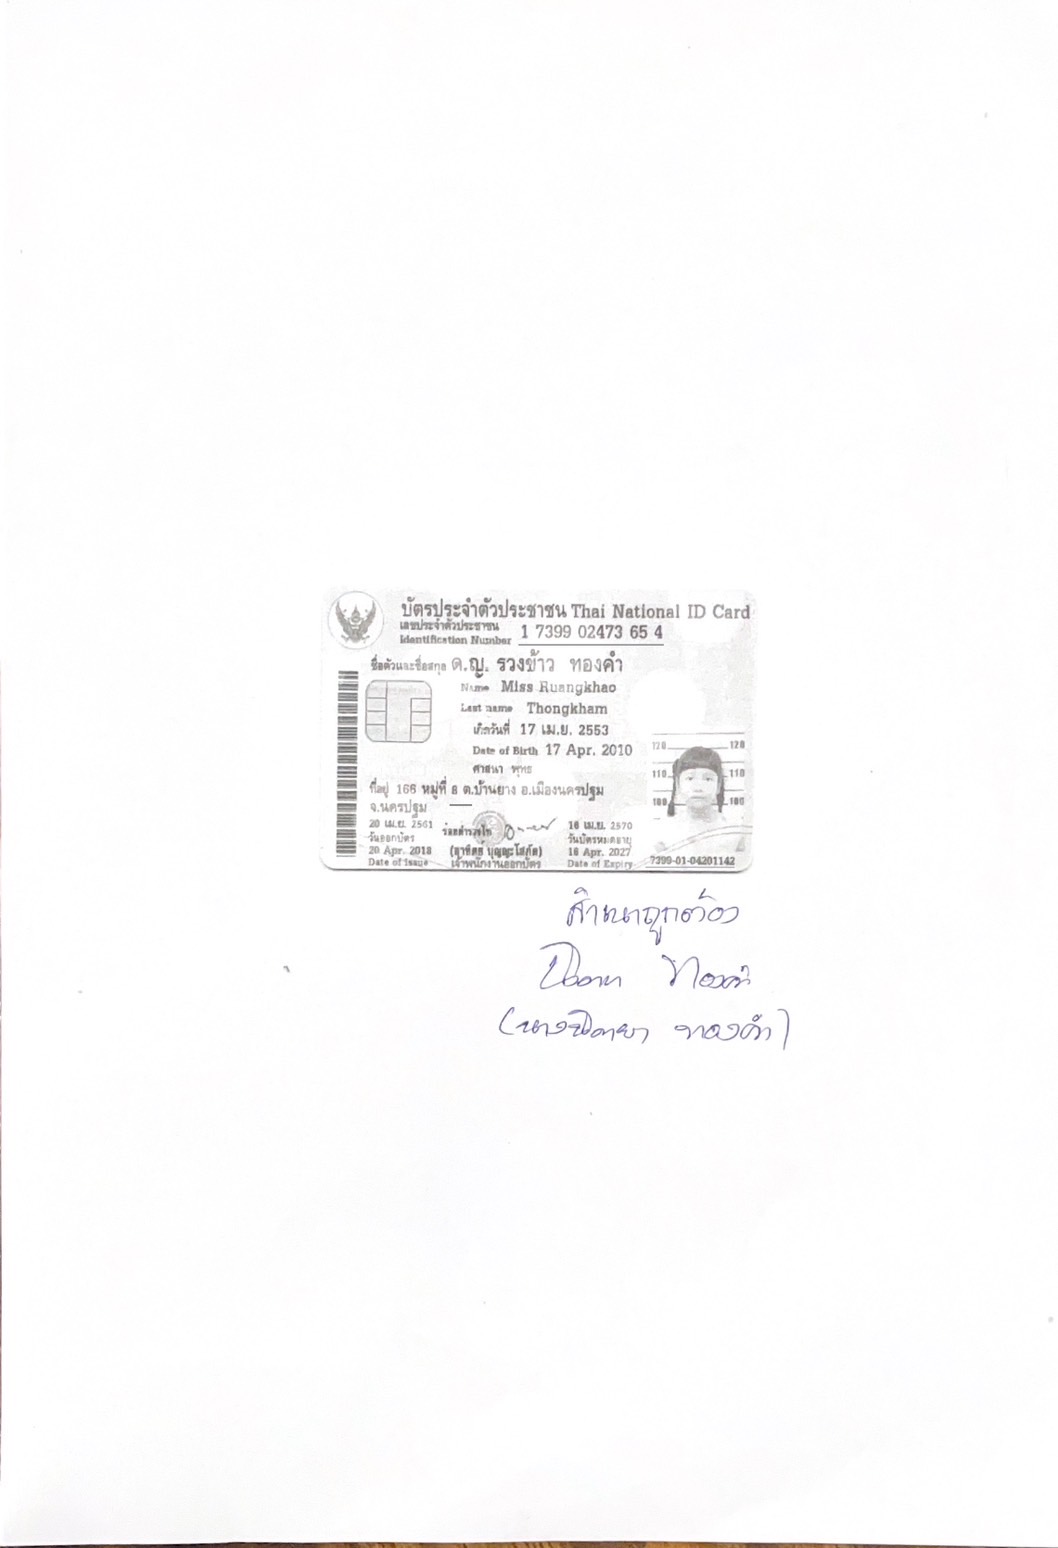 บัตรประจำตัวประชาชน Thai National ID Card
เลขประจำตัวประชาชน
Identification Number 1 7399 02473 65 4
ชื่อตัวและชื่อสกุล ด.ญ. รวงข้าว ทองคำ
Name Miss Ruangkhao
Last name Thongkham
เกิดวันที่ 17 เม.ย. 2553
Date of Birth 17 Apr. 2010
ศาสนา พุทธ
ที่อยู่ 166 หมู่ที่ 8 ต.บ้านยาง อ.เมืองนครปฐม
จ.นครปฐม
20 เม.ย. 2561
วันออกบัตร
20 Apr. 2018
Date of Issue
ร้อยตำรวจโท
เจ้าพนักงานออกบัตร
16 เม.ย. 2570
วันบัตรหมดอายุ
16 Apr. 2027
Date of Expiry
120 120
110 110
100 100
7399-01-04201142
สำเนาถูกต้อง
ทองคำ
ทองคำ)